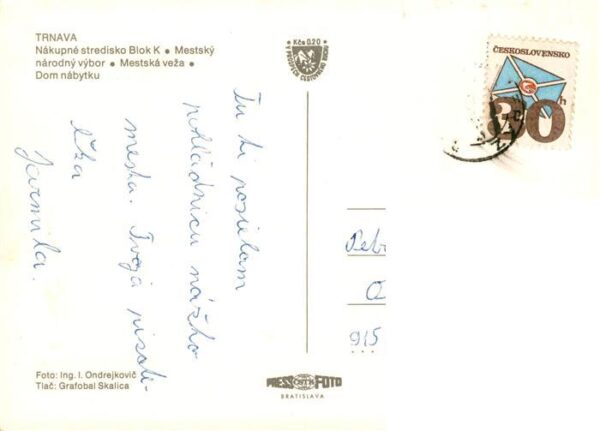 TRNAVA
Nákupné stredisko Blok K • Mestský
národný výbor • Mestská veža •
Dom nábytku
Kčs 0,20
ČESKOSLOVENSKO
30h
Tu ti posielam
pohľadnicu nášho
mesta. Tvoja pisate-
lka
Jarmila.
915
Foto: Ing. I. Ondrejkovič
Tlač: Grafobal Skalica
PRESS FOTO
BRATISLAVA